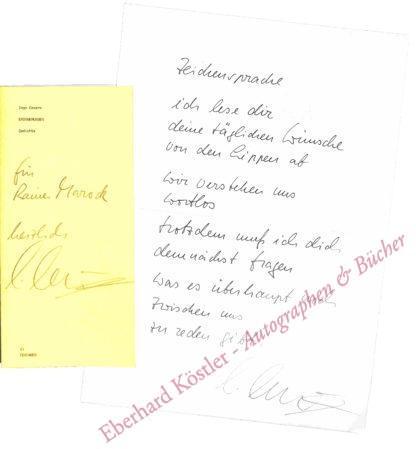 Ingo Cesaro
Gedichte
für
Rainer Marock
herzlich
Zeichensprache
ich lese dir
deine täglichen Wünsche
von den Lippen ab
wir verstehen uns
wortlos
trotzdem muß ich dich
demnächst fragen
was es überhaupt
zwischen uns
zu reden gibt
Eberhard Köstler - Autographen & Bücher